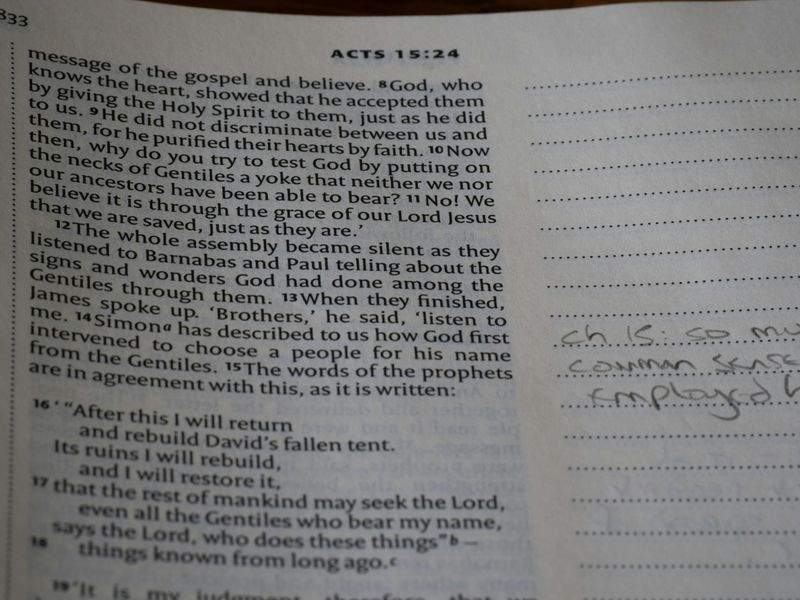 833
ACTS 15:24
message of the gospel and believe. 8God, who
knows the heart, showed that he accepted them
by giving the Holy Spirit to them, just as he did
to us. 9He did not discriminate between us and
them, for he purified their hearts by faith. 10Now
then, why do you try to test God by putting on
the necks of Gentiles a yoke that neither we nor
our ancestors have been able to bear? 11No! We
believe it is through the grace of our Lord Jesus
that we are saved, just as they are.’
12The whole assembly became silent as they
listened to Barnabas and Paul telling about the
signs and wonders God had done among the
Gentiles through them. 13When they finished,
James spoke up. ‘Brothers,’ he said, ‘listen to
me. 14Simona has described to us how God first
intervened to choose a people for his name
from the Gentiles. 15The words of the prophets
are in agreement with this, as it is written:
16 ‘ “After this I will return
and rebuild David’s fallen tent.
Its ruins I will rebuild,
and I will restore it,
17 that the rest of mankind may seek the Lord,
even all the Gentiles who bear my name,
says the Lord, who does these things” b –
18 things known from long ago.c
19 ‘It is my judgment, therefore, that we
ch 15: so mu
common sense
employed